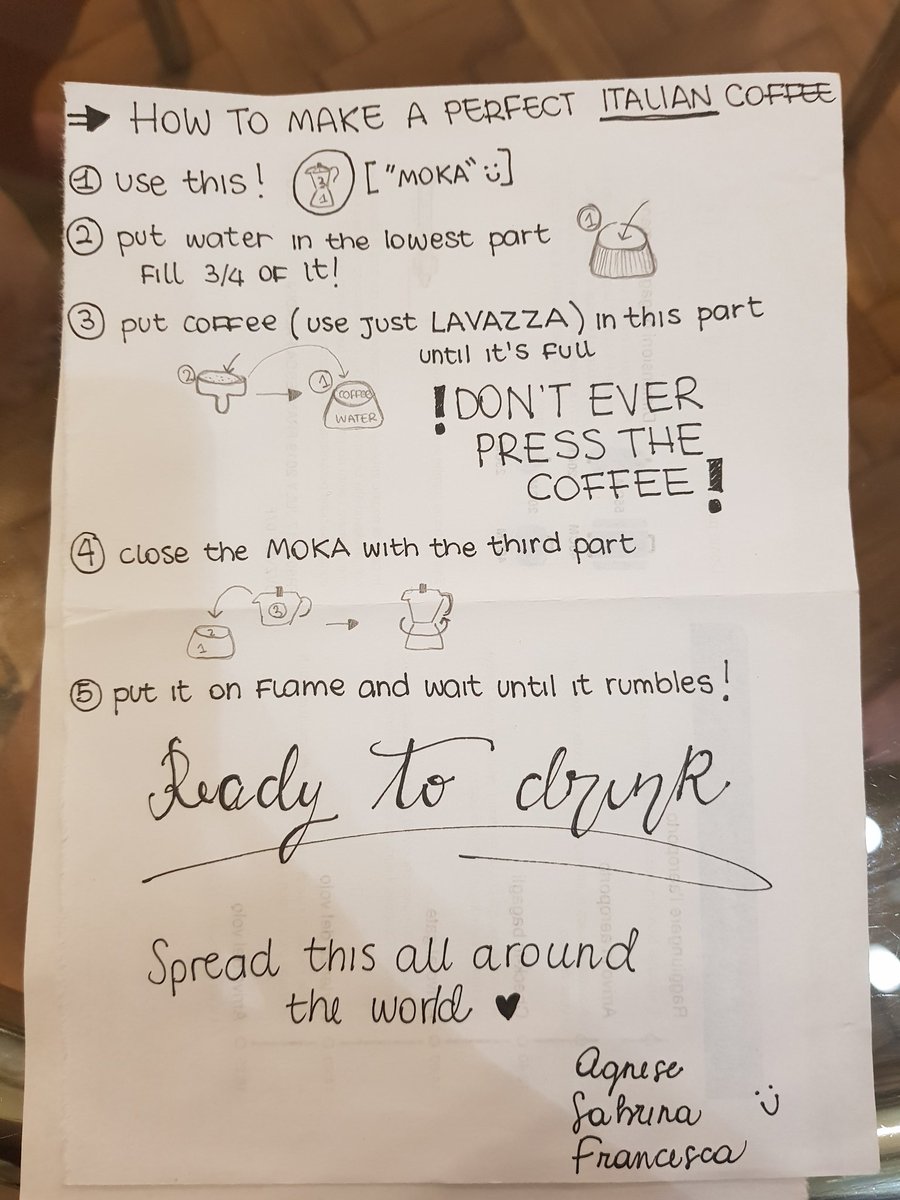 ⇒ HOW TO MAKE A PERFECT ITALIAN COFFEE
① use this! 3 1 ["MOKA" :)]
② put water in the lowest part ①
Fill 3/4 OF it!
③ put coffee (use just LAVAZZA) in this part
until it's full
② → ① COFFEE
WATER
! DON'T EVER
PRESS THE
COFFEE!
④ close the MOKA with the third part
2 1 ③ →
⑤ put it on Flame and wait until it rumbles!
Ready to drink
Spread this all around
the world ♥
Agnese
Sabrina :)
Francesca